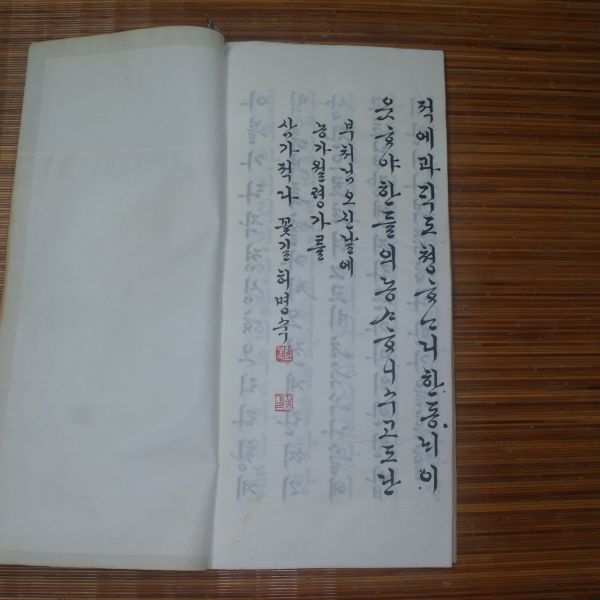 적에과긱도청ᄒᆞᄂᆞ니한동ᄂᆡ이
웃ᄒᆞ야한들의농ᄉᆞᄒᆞ니수고도난
부처님오신날에
농가월령가를
삼가적다 꽃길 허명숙